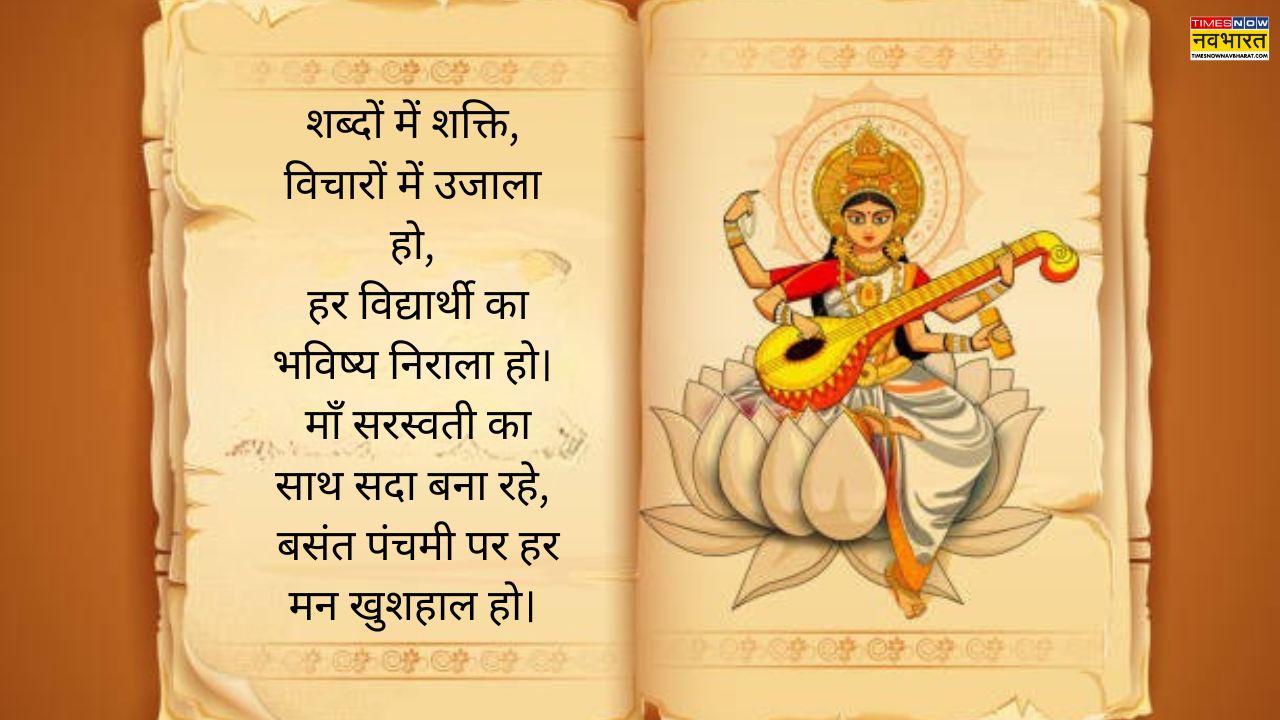 शब्दों में शक्ति,
विचारों में उजाला
हो,
हर विद्यार्थी का
भविष्य निराला हो।
माँ सरस्वती का
साथ सदा बना रहे,
बसंत पंचमी पर हर
मन खुशहाल हो।
TIMES NOW
नवभारत
TIMESNOWNAVBHARAT.COM